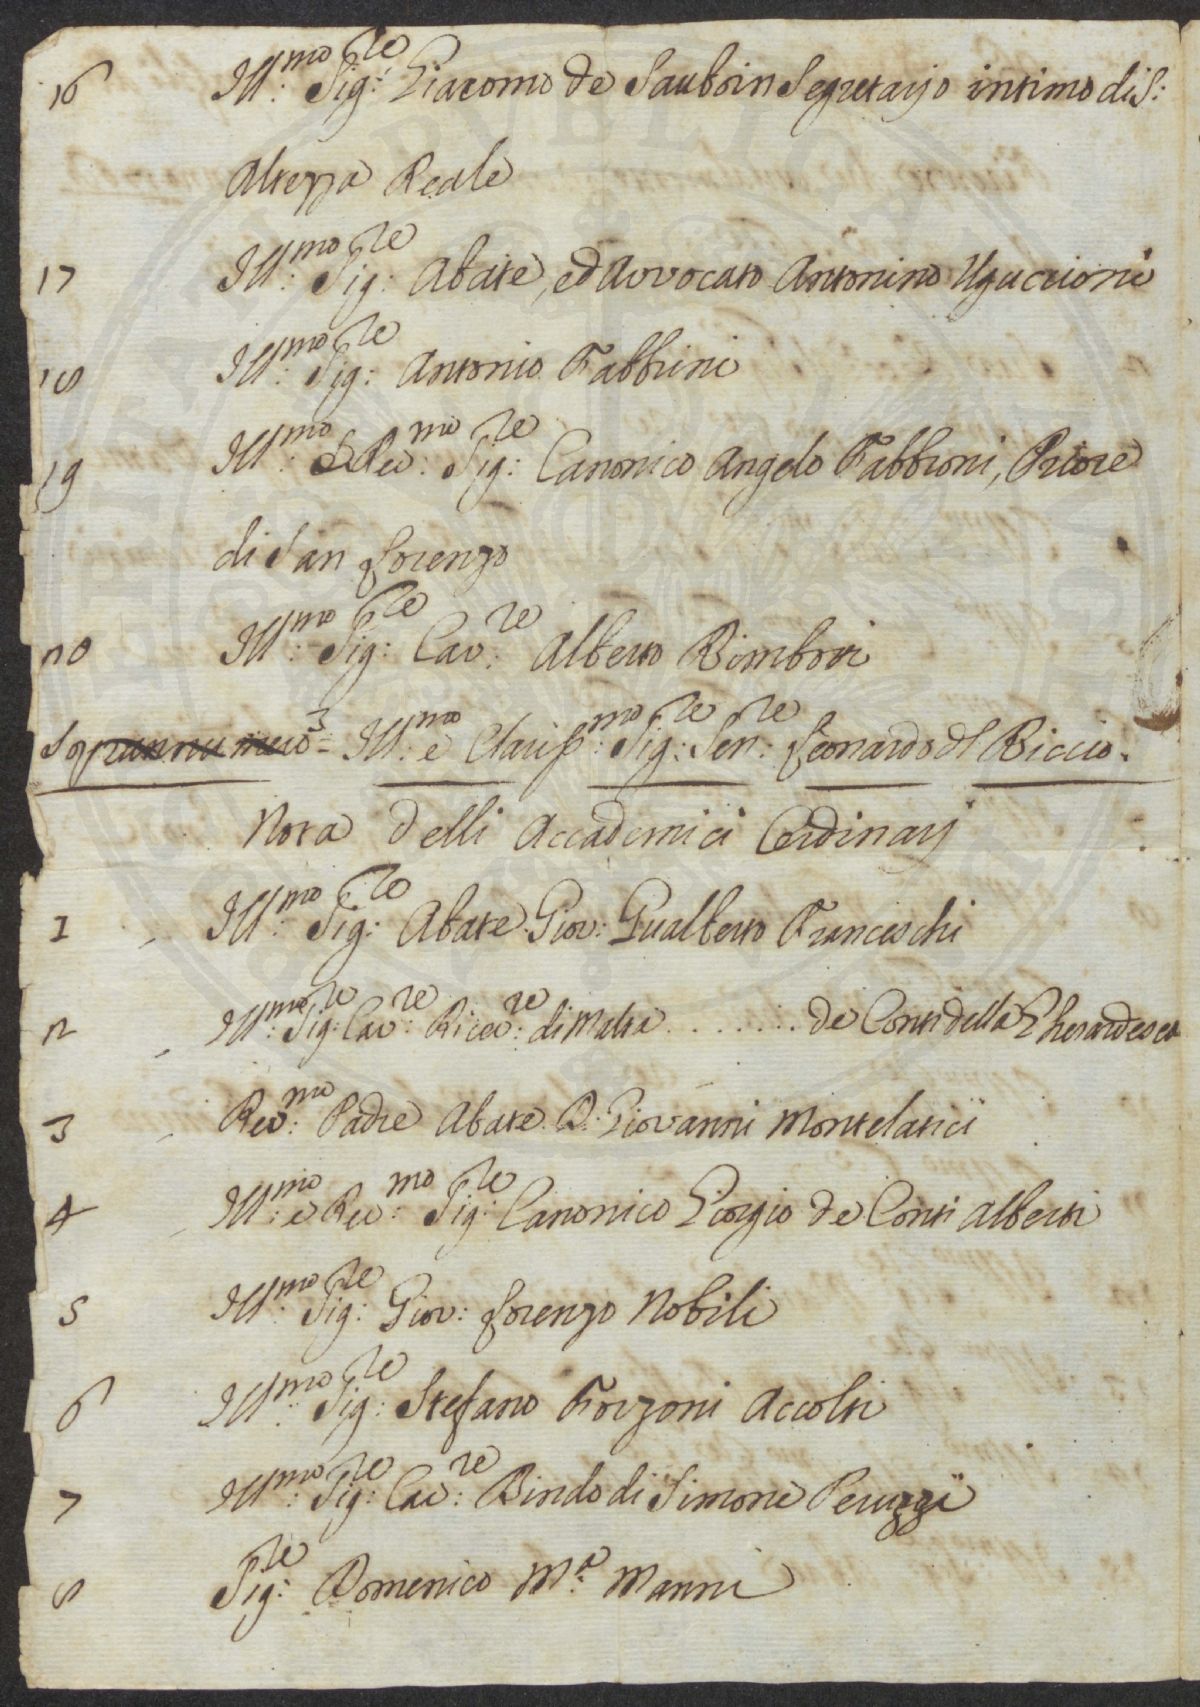 16 Ill:mo Sig:re Giacomo de Sauboin Segretario intimo di S:
Altezza Reale
17 Ill:mo Sig:re Abate, ed Avvocato Antonino Uguccioni
18 Ill:mo Sig:re Antonio Fabbrini
19 Ill:mo e Rev:mo Sig:re Canonico Angelo Fabbroni, Priore
di San Lorenzo
20 Ill:mo Sig:re Cav:re Alberto Rimbotti
Soprannumero = Ill:mo e Clariss:mo Sig:re Sen:re Leonardo del Riccio.
Nota delli Accademici Ordinarj
1 Ill:mo Sig:re Abate Giov: Gualberto Franceschi
2 Ill:mo Sig:re Cav:re Ricev:re di Malta ........ de Conti della Gherardesca
3 Rev:mo Padre Abate D. Giovanni Montelatici
4 Ill:mo e Rev:mo Sig:re Canonico Giorgio de Conti Alberti
5 Ill:mo Sig:re Giov: Lorenzo Nobili
6 Ill:mo Sig:re Stefano Forzoni Accolti
7 Ill:mo Sig:re Cav:re Bindo di Simone Peruzzi
8 Sig:re Domenico M:a Manni